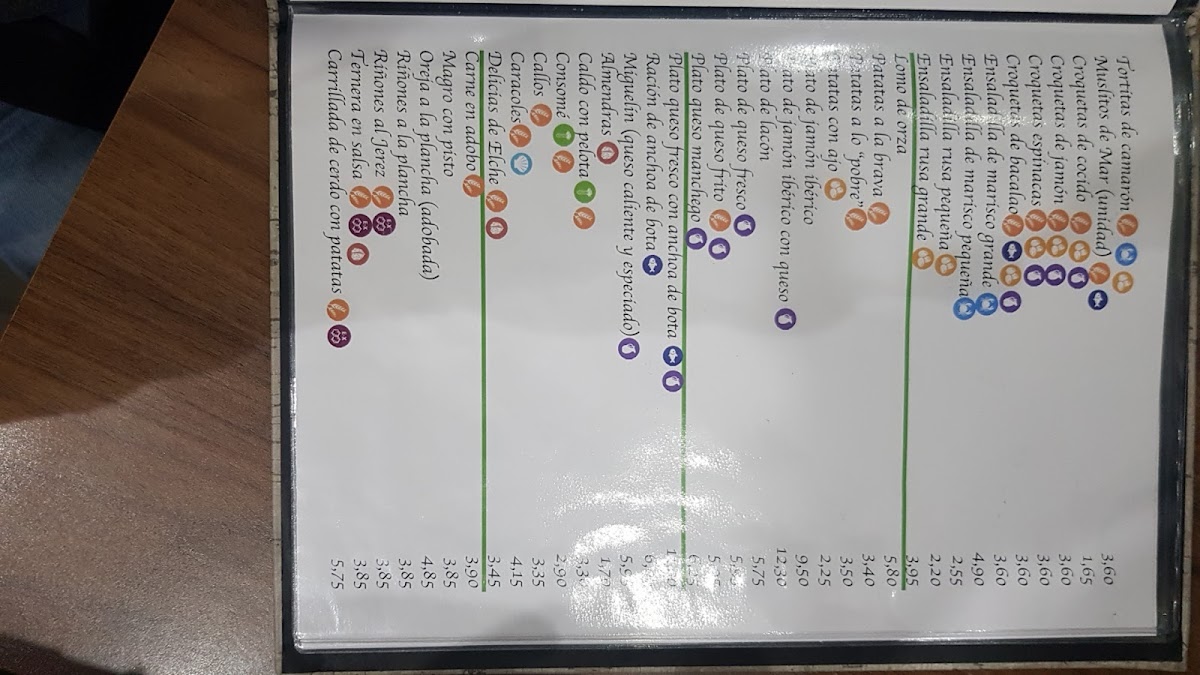 Tortitas de camarón 3,60
Muslitos de Mar (unidad) 1,65
Croquetas de cocido 3,60
Croquetas de jamón 3,60
Croquetas espinacas 3,60
Croquetas de bacalao 3,60
Ensaladilla de marisco grande 4,90
Ensaladilla de marisco pequeña 2,55
Ensaladilla rusa pequeña 2,20
Ensaladilla rusa grande 3,95
Lomo de orza 5,80
Patatas a la brava 3,40
Patatas a lo "pobre" 3,50
Patatas con ajo 2,25
Plato de jamón ibérico 9,50
Plato de jamón ibérico con queso 12,30
Plato de lacón 5,75
Plato de queso fresco
Plato de queso frito
Plato queso manchego
Plato queso fresco con anchoa de bota
Ración de anchoa de bota
Miguelín (queso caliente y especiado)
Almendras 1,70
Caldo con pelota
Consomé 2,90
Callos 3,35
Caracoles 4,15
Delicias de Elche 3,45
Carne en adobo 3,90
Magro con pisto 3,85
Oreja a la plancha (adobada) 4,85
Riñones a la plancha 3,85
Riñones al Jerez 3,85
Ternera en salsa 3,85
Carrillada de cerdo con patatas 5,75